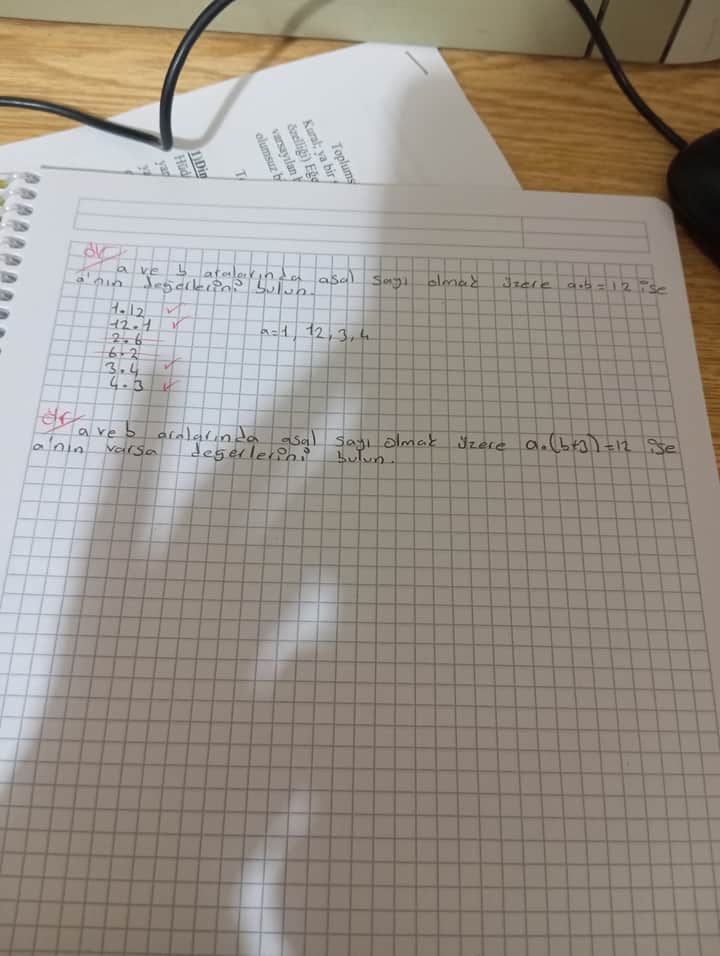 Toplums
Kural; ya bir
özelliği) Eğe
varsayılan
olumsuz b
1)Din
Hüd
yan
ör/
a ve b aralarında asal sayı olmak üzere a.b=12 ise
a'nın değerlerini bulun.
1.12 ✓
12.1 ✓
2.6
6.2
3.4 ✓
4.3 ✓
a=1, 12, 3, 4
ör/
a ve b aralarında asal sayı olmak üzere a.(b+3)=12 ise
a'nın varsa değerlerini bulun.